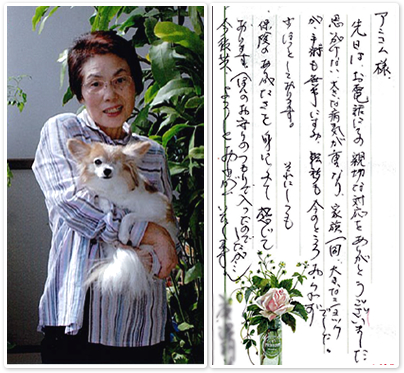 アニコム様
先日は、お電話での親切な対応をありがとうございました
思いがけない大きな病気が重なり、家族一同、大きなショックでした。
が、手術も無事にすみ、転移も今のところありませず
ほっとしております。それにしても
保険のありがたさを身にしみて感じて
おります。ほんのお守りのつもりで入ったのでしたが…
今後共、よろしくお願いいたします